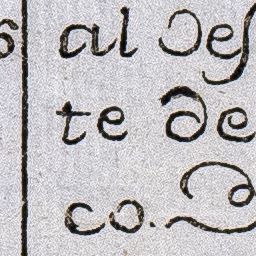 al des
te de
co.